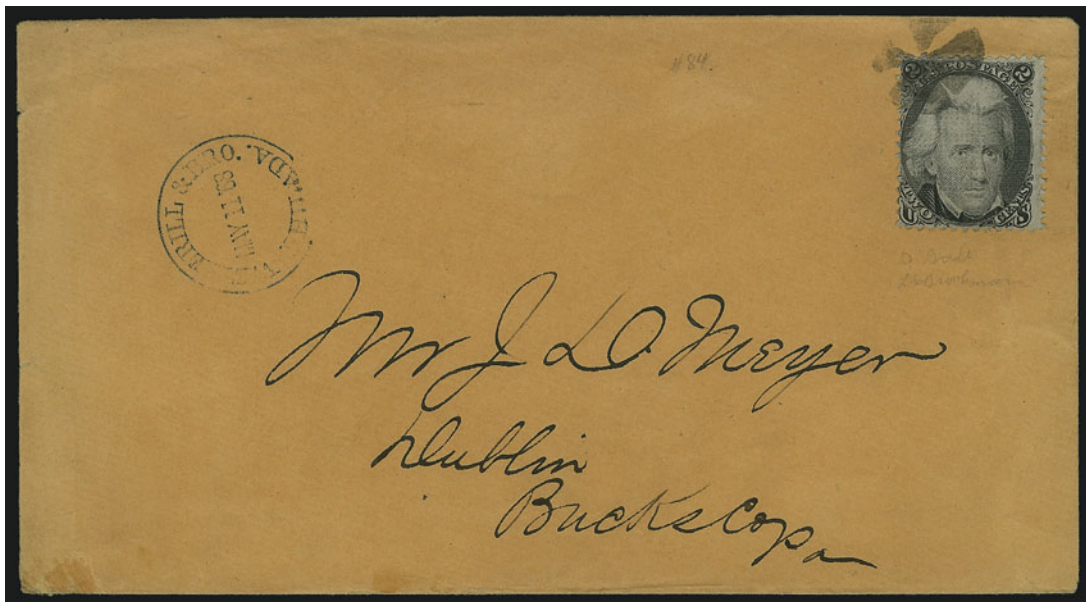 #84
2 U.S. POSTAGE 2
U TWO CENTS S
BRILL & BRO. PHILADA.
MAY 11 68
D. Grade
Mr J D. Meyer
Dublin
Bucks Co Pa